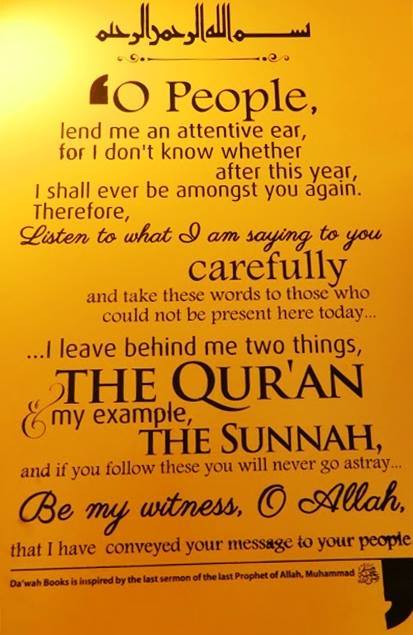 بسم الله الرحمن الرحيم
‘O People,
lend me an attentive ear,
for I don't know whether
after this year,
I shall ever be amongst you again.
Therefore,
Listen to what I am saying to you
carefully
and take these words to those who
could not be present here today...
...I leave behind me two things,
THE QUR'AN
& my example,
THE SUNNAH,
and if you follow these you will never go astray...
Be my witness, O Allah,
that I have conveyed your message to your people
Da'wah Books is inspired by the last sermon of the last Prophet of Allah, Muhammad ﷺ